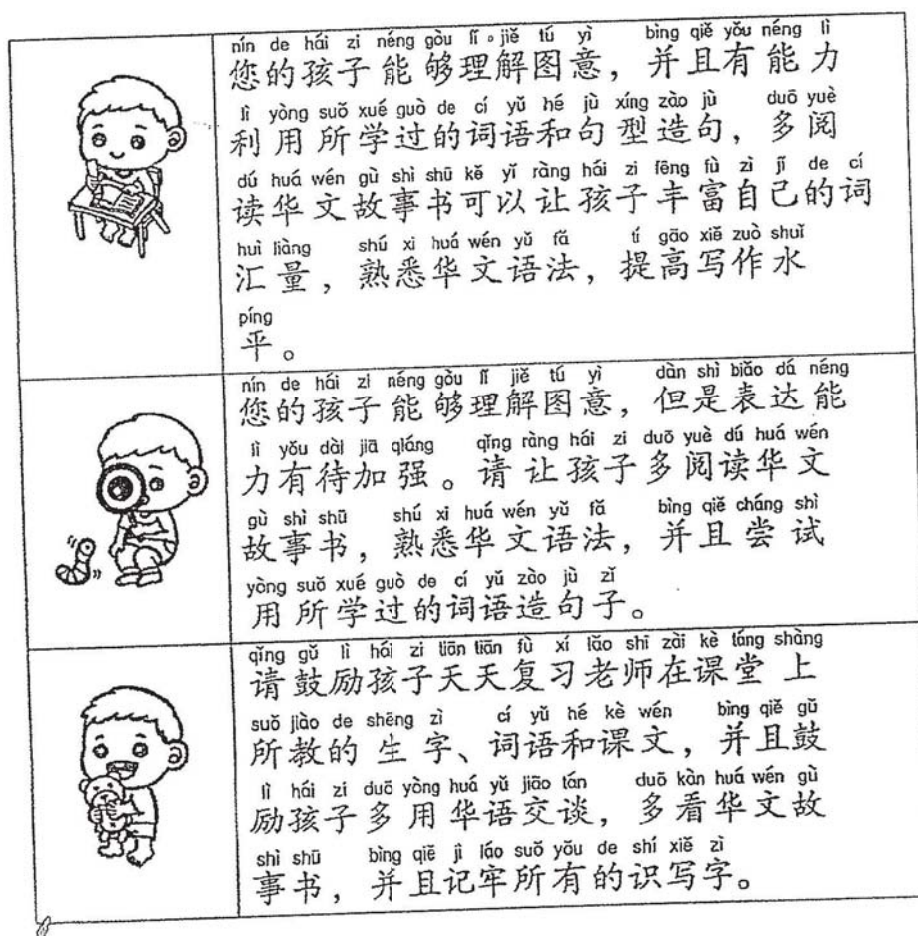 nín de hái zi néng gòu lǐ 。 jiě tú yì bìng qiě yǒu néng lì
您的孩子能够理解图意，并且有能力
lì yòng suǒ xué guò de cí yǔ hé jù xíng zào jù duō yuè
利用所学过的词语和句型造句，多阅
dú huá wén gù shì shū kě yǐ ràng hái zi fēng fù zì jǐ de cí
读华文故事书可以让孩子丰富自己的词
huì liàng shú xi huá wén yǔ fǎ tí gāo xiě zuò shuǐ
汇量，熟悉华文语法，提高写作水
píng
平。
nín de hái zi néng gòu lǐ jiě tú yì dàn shì biǎo dá néng
您的孩子能够理解图意，但是表达能
lì yǒu dài jiā qiáng qǐng ràng hái zi duō yuè dú huá wén
力有待加强。请让孩子多阅读华文
gù shì shū shú xi huá wén yǔ fǎ bìng qiě cháng shì
故事书，熟悉华文语法，并且尝试
yòng suǒ xué guò de cí yǔ zào jù zǐ
用所学过的词语造句子。
qǐng gǔ lì hái zi tiān tiān fù xí lǎo shī zài kè táng shàng
请鼓励孩子天天复习老师在课堂上
suǒ jiào de shēng zì cí yǔ hé kè wén bìng qiě gǔ
所教的生字、词语和课文，并且鼓
lì hái zi duō yòng huá yǔ jiāo tán duō kàn huá wén gù
励孩子多用华语交谈，多看华文故
shì shū bìng qiě jì láo suǒ yǒu de shí xiě zì
事书，并且记牢所有的识写字。